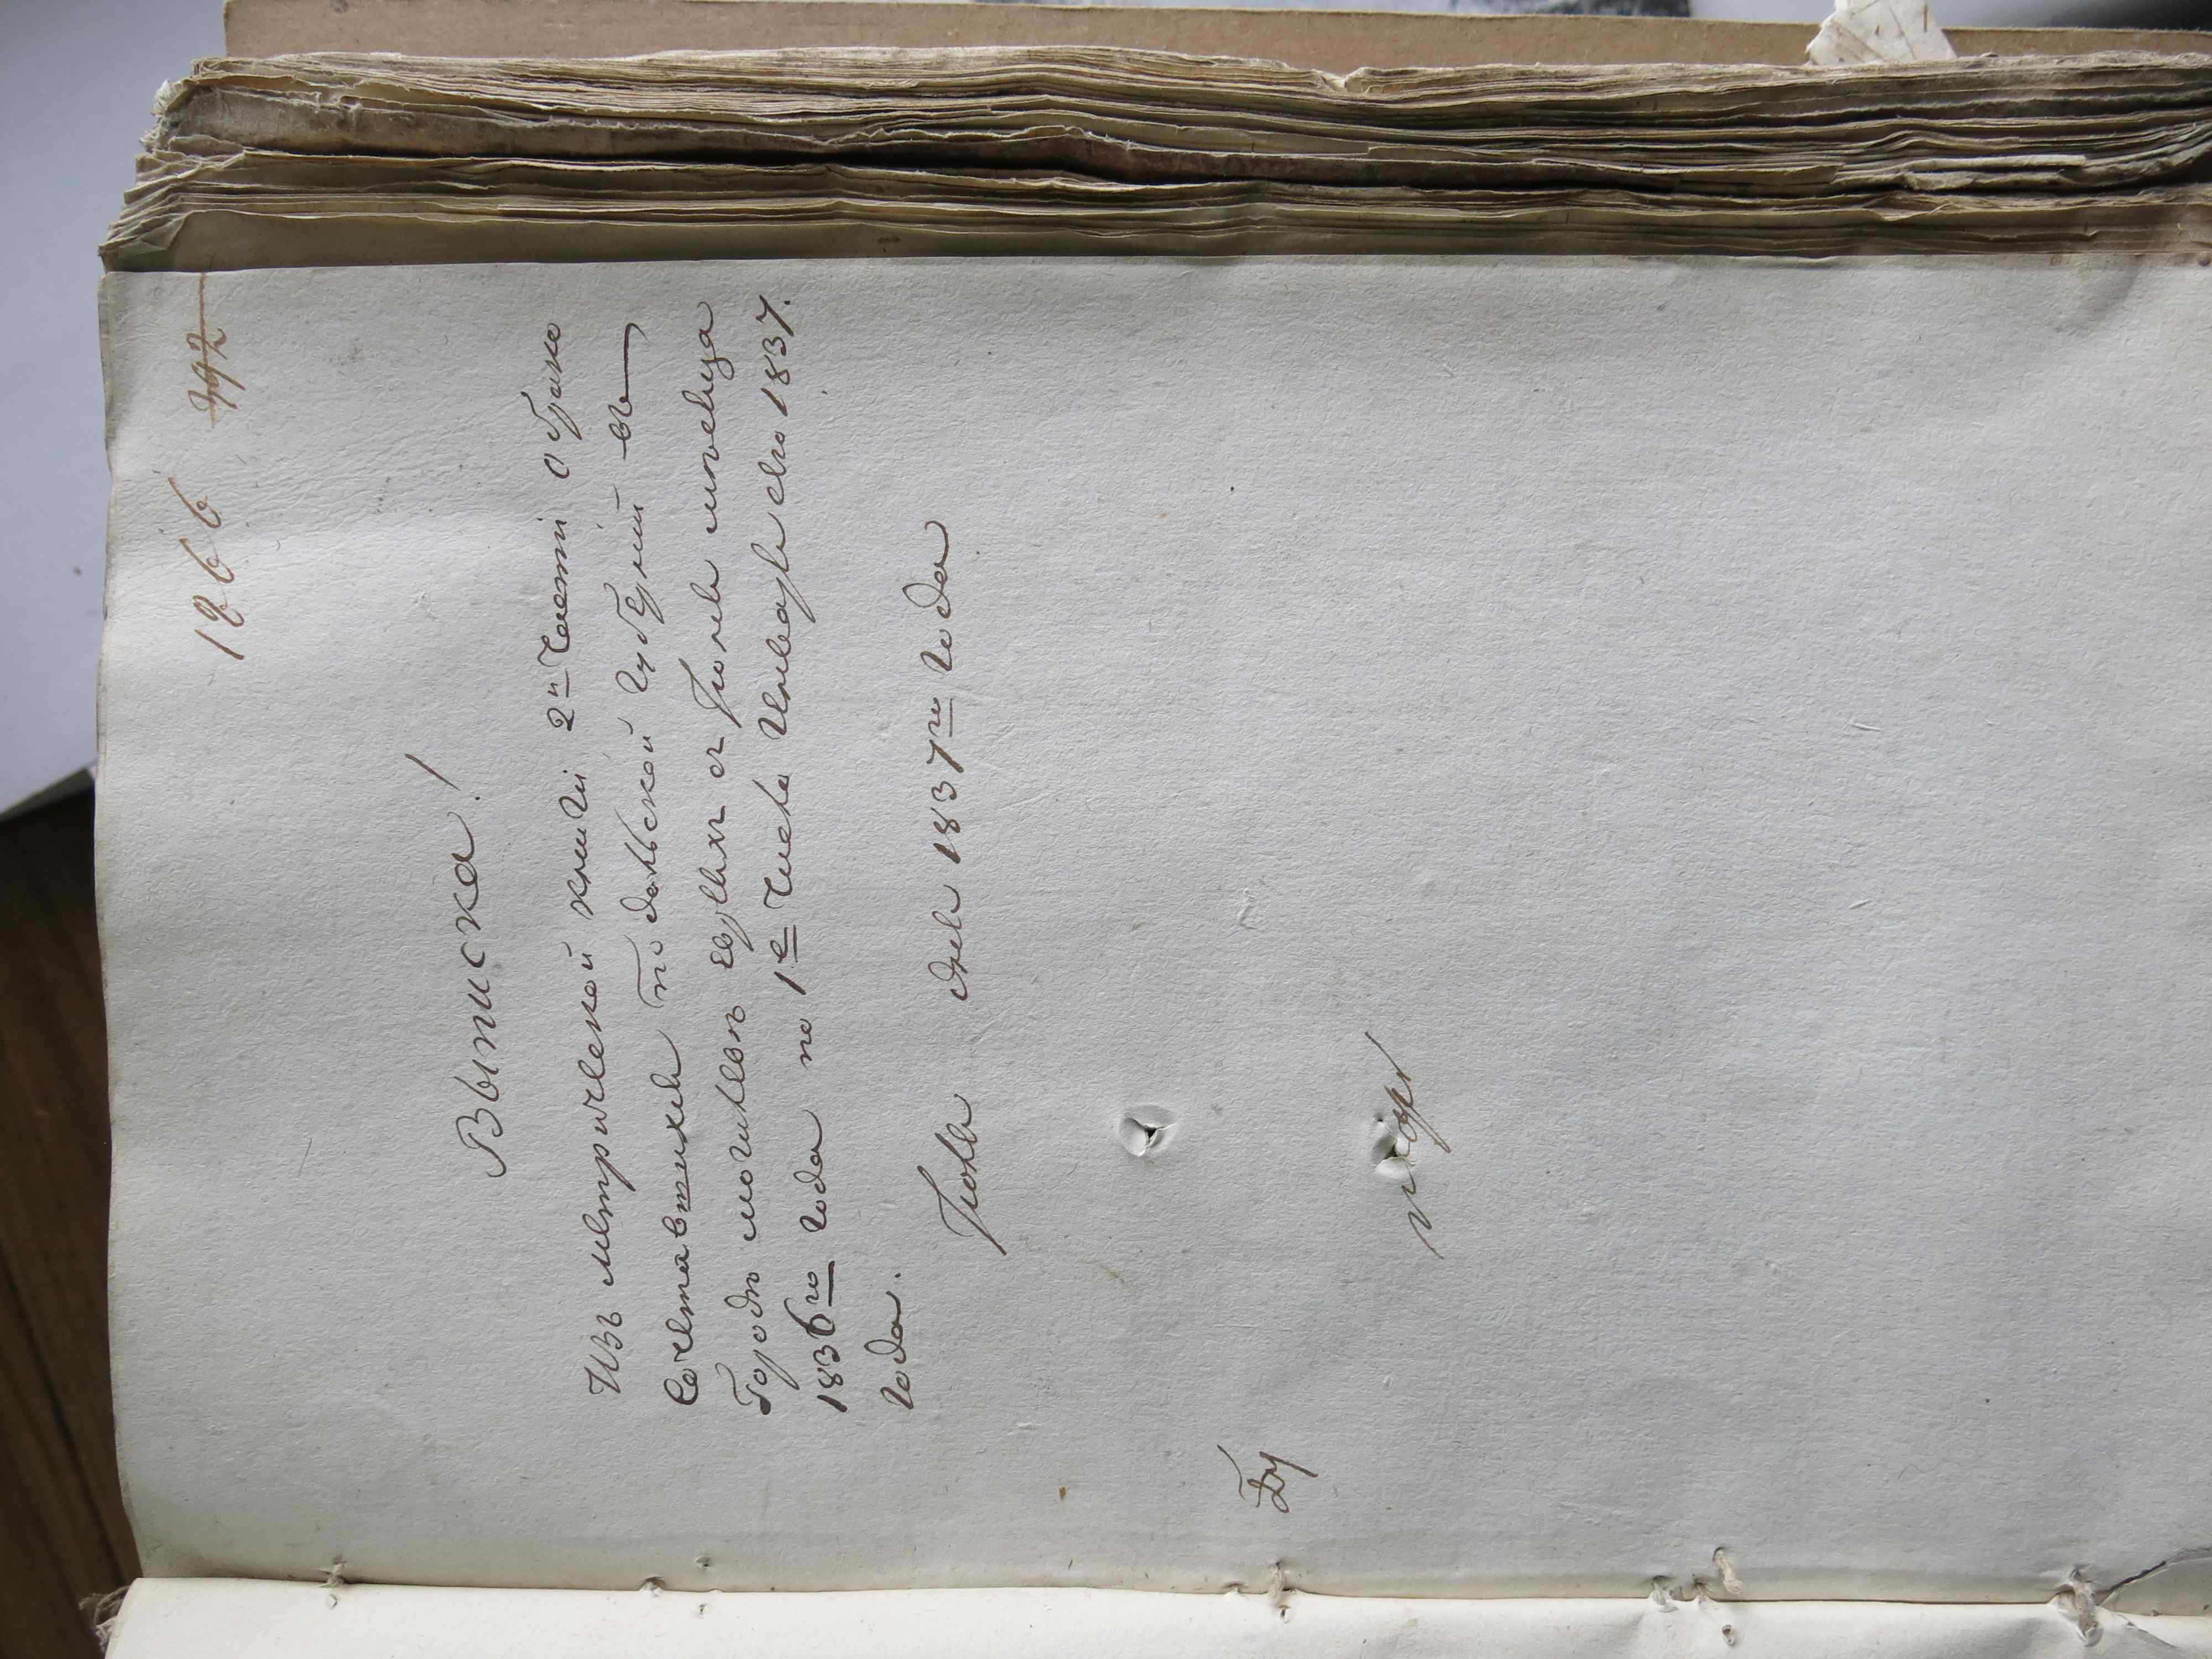 1266 792
Выписка!
Изъ метрической книги 2й Части о брако
сочетавшихся подольской губернии въ
Городѣ могилевѣ евреяхъ съ Июля месяца
1836го года по 1е Число Генваря сего 1837.
года.
Июля дня 1837го года